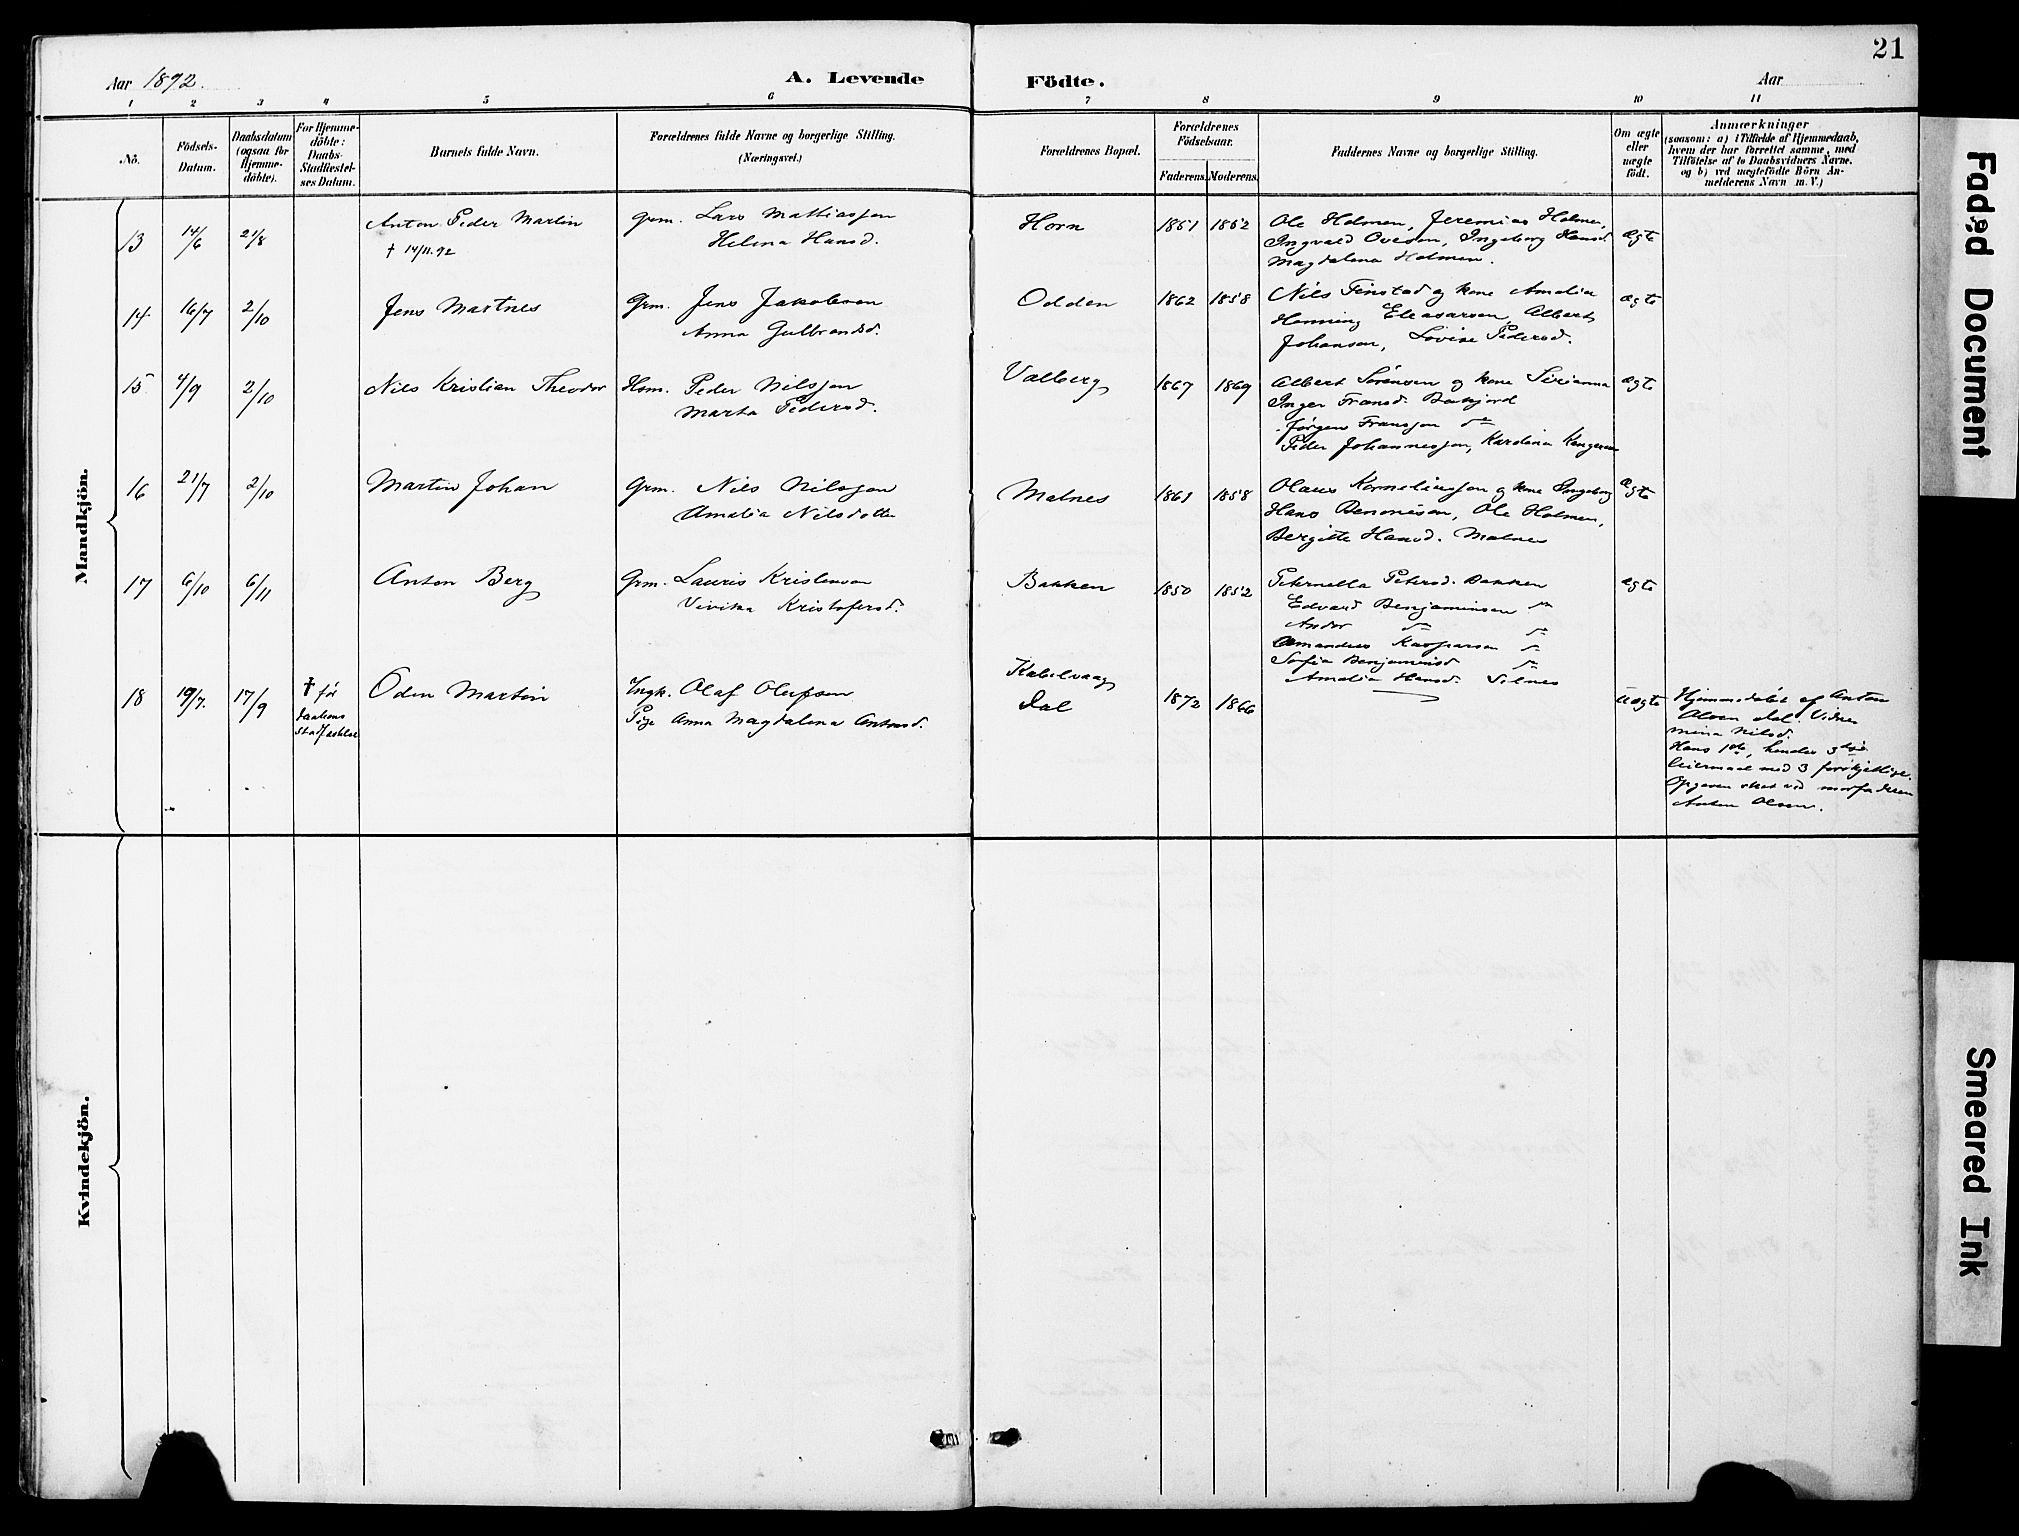 21
Aar 1892.
A. Levende Födte.
Aar
1 2 3 4 5 6 7 8 9 10 11
No.
Födsels-Datum.
Daabsdatum (ogsaa for Hjemme-döbte).
For Hjemme-döbte: Daabs-Stadfæstel-ses Datum.
Barnets fulde Navn.
Forældrenes fulde Navne og borgerlige Stilling.
(Næringsvei.)
Forældrenes Bopæl.
Forældrenes Födselsaar.
Faderens. Moderens.
Faddernes Navne og borgerlige Stilling.
Om ægte eller uægte födt.
Anmærkninger
(saasom: a) i Tilfælde af Hjemmedaab,
hvem der har forrettet samme, med
Tilföielse af to Daabsvidners Navne,
og b) ved uægtefödte Börn An-
melderens Navn m. V.)
Mandkjön.
13 14/6 21/8 Anton Peder Martin Grm. Lars Mathiassen Horn 1861 1862 Ole Holmen, Jeremias Holmen,
† 14/11.92 Helena Hansd. Ingvald Ovesen, Ingeborg Hansd. ægte
Magdalena Holmen.
14 16/7 2/10 Jens Martnes Grm. Jens Jakobsen Odden 1862 1858 Nils Finstad og kone Amalia ægte
Anna Gulbrandsd. Henning Eleasarsen, Albert
Johansen, Lovise Pedersd.
15 4/9 2/10 Nils Kristian Theodor Hsm. Peder Nilssen Valberg 1867 1869 Albert Sörensen og kone ægte
Marta Pedersd. Inger Fransd.
Jörgen Franssen do
Peder Johannessen, Kardina
16 21/7 2/10 Martin Johan Grm. Nils Nilssen Malnes 1861 1858 Olaus Korneliussen og kone Ingeborg ægte
Amalia Nilsdatter Hans Benonisen, Ole Holmen,
Bergitte Hansd. Malnes
17 6/10 6/11 Anton Berg Grm. Lauris Kristensen Bakken 1850 1852 Peternella Petersd. Bakken ægte
Vivika Kristofersd. Edvard Benjaminsen do
Andor do
Amandus Kasparsen do
Sofia Benjaminsd. do
Amalia Hansd.
18 19/7. 17/9 † før daabens stadfæstelse Oden Martin Ungk. Olaf Olufsen Kabelvaag 1872 1866 uægte Hjemmedøbt af Anton
Pige Anna Magdalena Antonsd. Dal Olsen Dal. Vidner
Mina Nilsd.
Hans 1ste, hendes 3die
leiermaal med 3 forskjellige.
Opgaven sket ved morfaderen
Anton Olsen.
Kvindekjön.
Faded Document
Smeared Ink